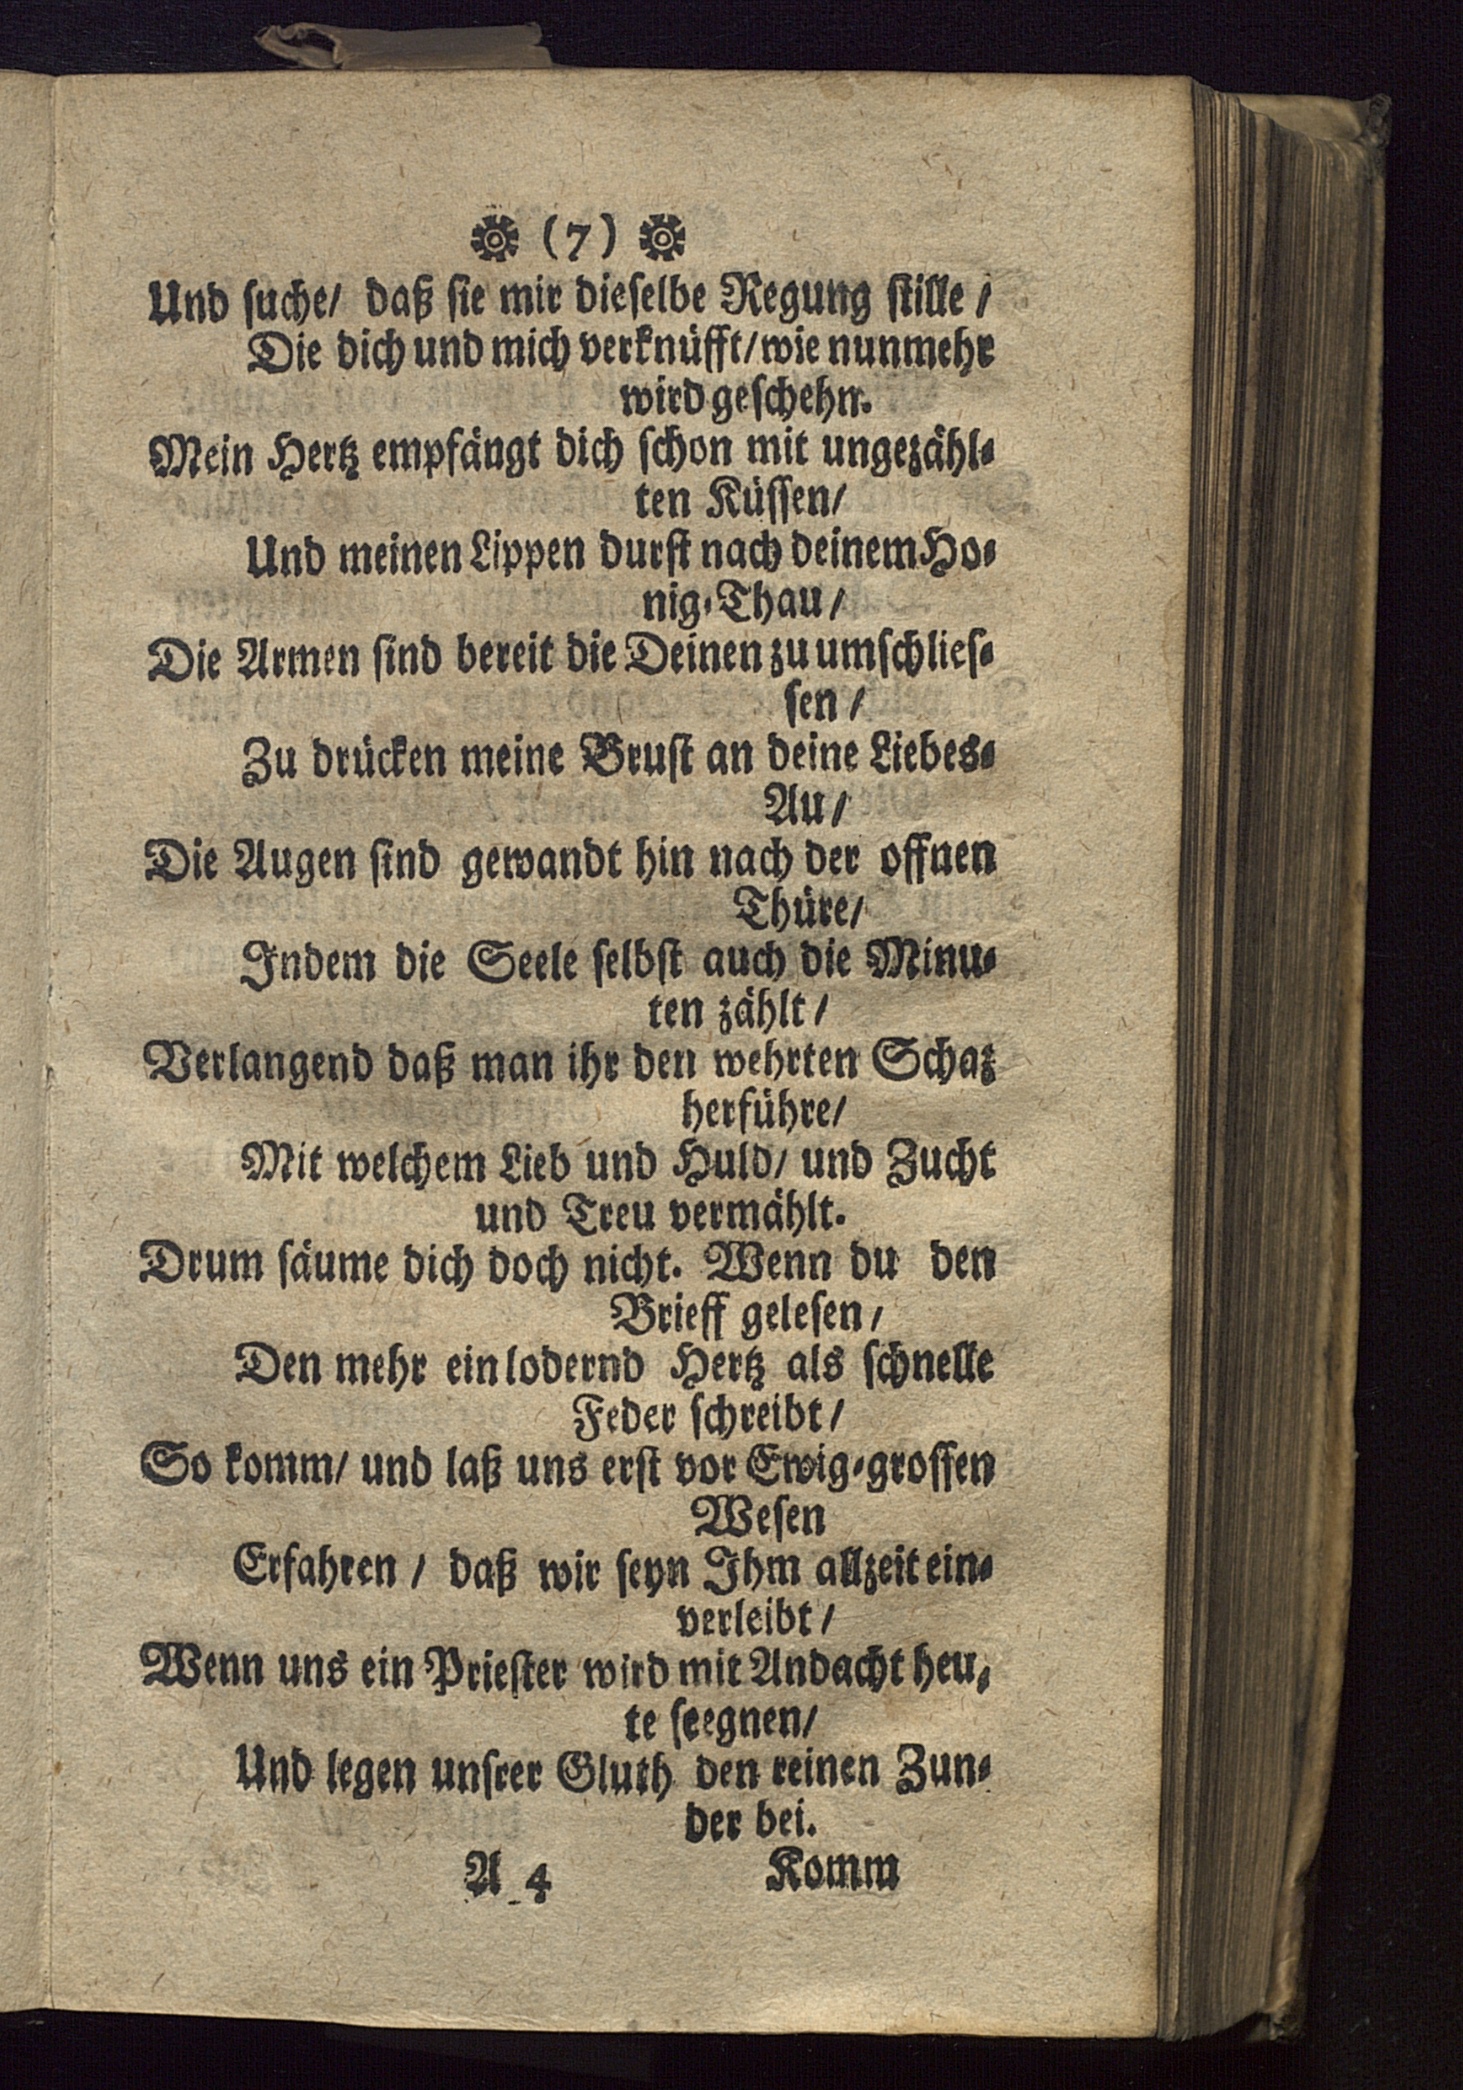 (7)
Und suche/ daß sie mir dieselbe Regung stille/
Die dich und mich verknüfft/ wie nunmehr
wird geschehn.
Mein Hertz empfängt dich schon mit ungezähl-
ten Küssen/
Und meinen Lippen durst nach deinem Ho-
nig-Thau/
Die Armen sind bereit die Deinen zu umschlies-
sen/
Zu drücken meine Brust an deine Liebes-
Au/
Die Augen sind gewandt hin nach der offnen
Thüre/
Indem die Seele selbst auch die Minu-
ten zählt/
Verlangend daß man ihr den wehrten Schaz
herführe/
Mit welchem Lieb und Huld/ und Zucht
und Treu vermählt.
Drum säume dich doch nicht. Wenn du den
Brieff gelesen/
Den mehr ein lodernd Hertz als schnelle
Feder schreibt/
So komm/ und laß uns erst vor Ewig-grossen
Wesen
Erfahren/ daß wir seyn Ihm allzeit ein-
verleibt/
Wenn uns ein Priester wird mit Andacht heu-
te seegnen/
Und legen unsrer Gluth den reinen Zun-
der bei.
A 4 Komm